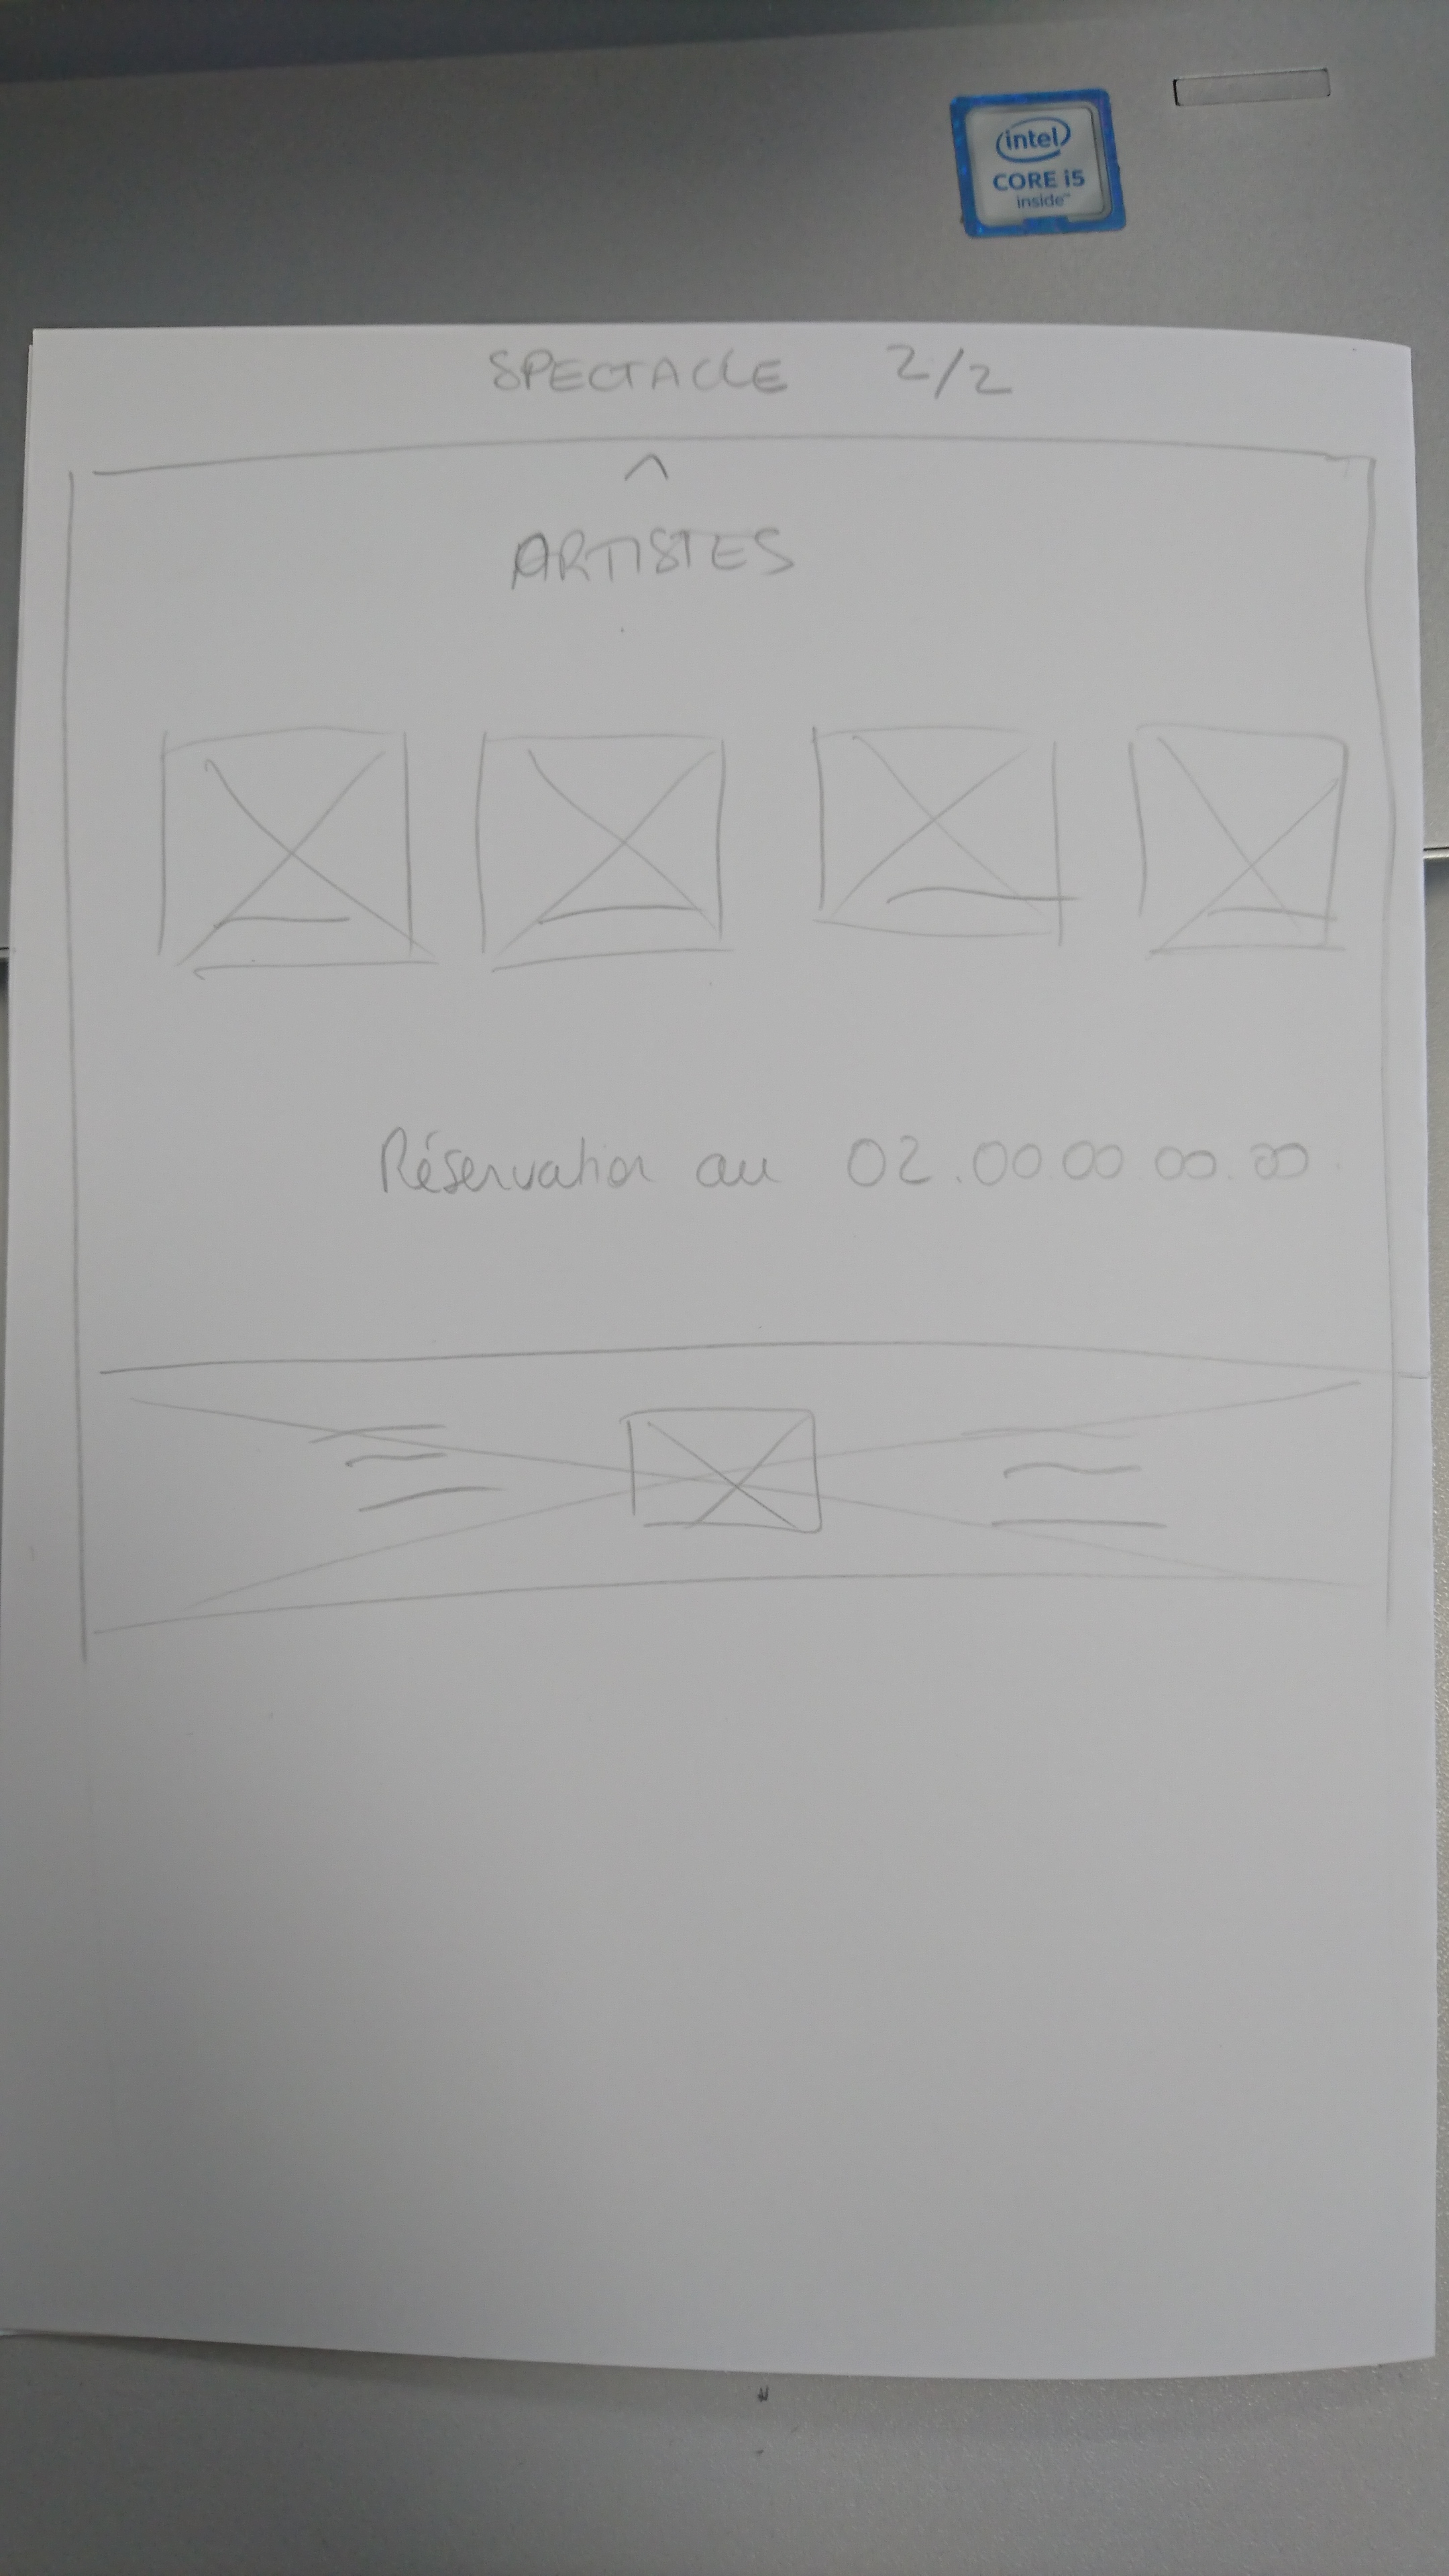 intel
CORE i5
inside™
SPECTACLE 2/2
ARTISTES
Réservation au 02.00.00.00.00